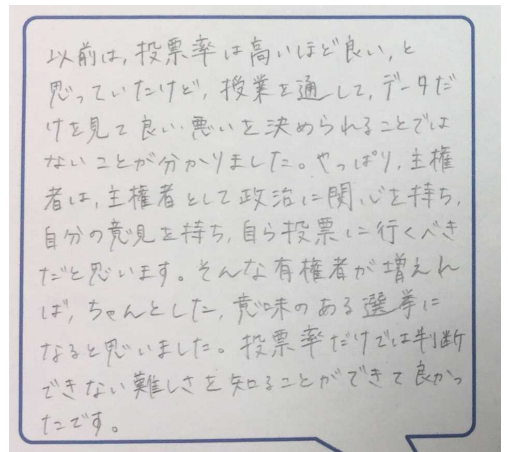 以前は,投票率は高いほど良い,と
思っていたけど,授業を通して,データだ
けを見て良い・悪いを決められることでは
ないことが分かりました。やっぱり,主権
者は,主権者として政治に関心を持ち,
自分の意見を持ち,自ら投票に行くべき
だと思います。そんな有権者が増えれ
ば,ちゃんとした,意味のある選挙に
なると思いました。投票率だけでは判断
できない難しさを知ることができて良かっ
たです。